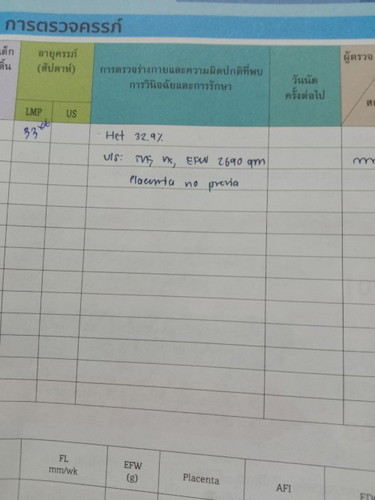 การตรวจครรภ์
เด็ก
ดิ้น
อายุครรภ์
(สัปดาห์)
LMP
US
การตรวจร่างกายและความผิดปกติที่พบ
การวินิจฉัยและการรักษา
วันนัด
ครั้งต่อไป
ผู้ตรวจ
33
Hct 32.9%
U/S: SVF, Vx, EFW 2690 gm
Placenta no previa
FL
mm/wk
EFW
(g)
Placenta
AFI